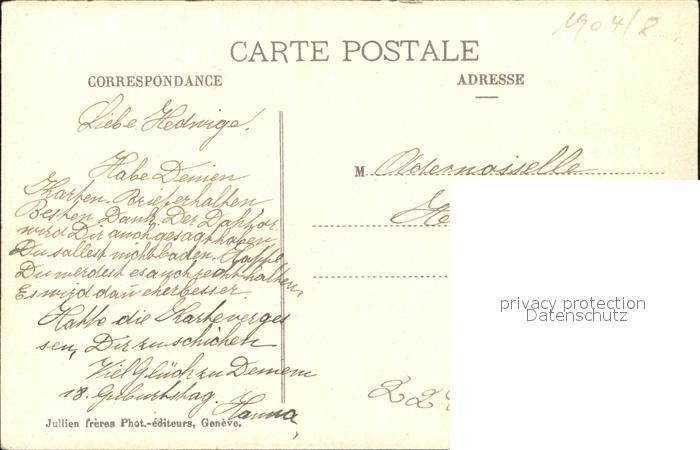 1904/8
CARTE POSTALE
CORRESPONDANCE
ADRESSE
Liebe Hedwige!
Habe Deinen
Karten-Brief erhalten
Besten Dank. Der Doktor
wird Dir auch gesagt haben
Du sollest nicht baden.
Du werdest es auch recht halten,
Es wird dañ eher besser
Hatte die Karte verges
sen, Dir zu schicken
Viel Glück zu Deinem
18. Geburtstag.
Hanna
M
He
privacy protection
Datenschutz
Jullien frères Phot.-éditeurs, Genève.